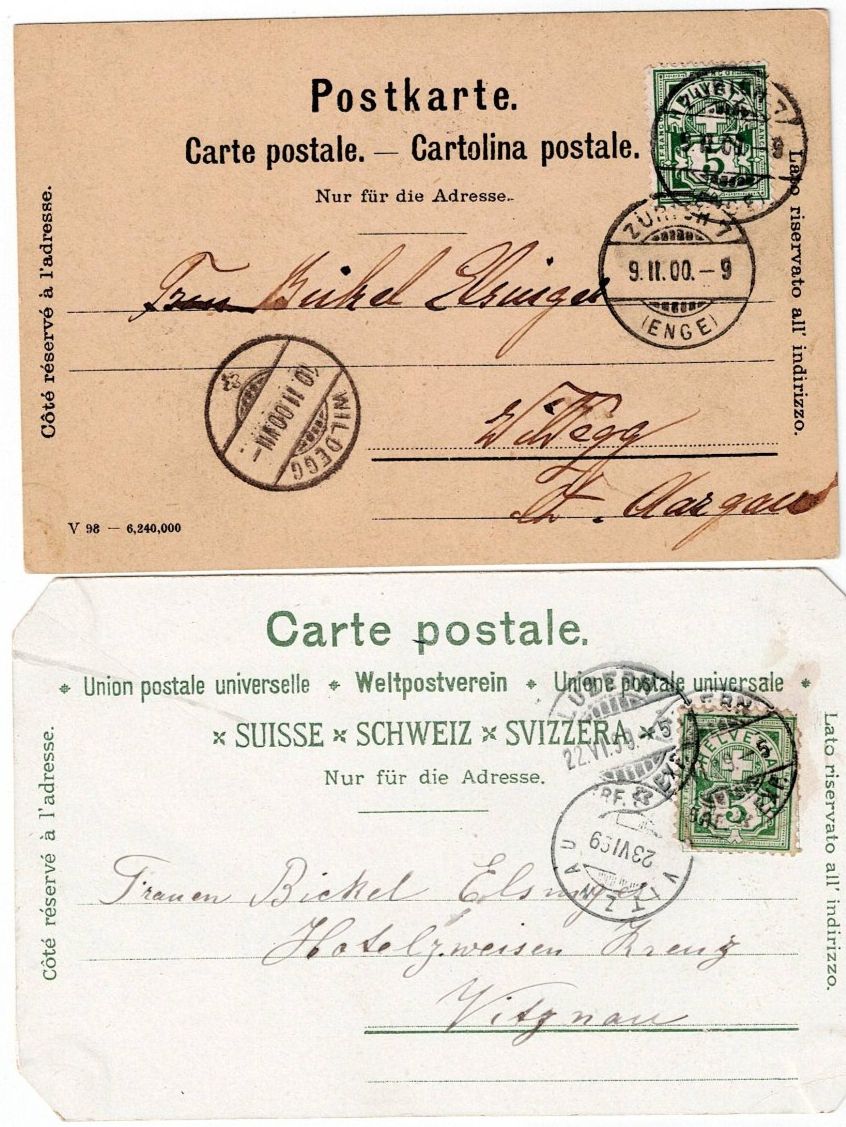 Postkarte.
Carte postale. — Cartolina postale.
Nur für die Adresse.
Côté réservé à l'adresse.
Lato riservato all' indirizzo.
HELVETIA
5
ZÜRICH 7
9.II.00.-9
(ENGE)
Frau Bickel
WILDEGG
10.II.00.VII-
Wildegg
Kt. Aargau
V 98 — 6,240,000
Carte postale.
Union postale universelle * Weltpostverein * Unione postale universale *
× SUISSE × SCHWEIZ × SVIZZERA ×
Nur für die Adresse.
Côté réservé à l'adresse.
Lato riservato all' indirizzo.
LUZERN
22.VI.99.-5
BRF. EXP.
HELVETIA
5
VITZNAU
23 VI 99
Frauen Bickel
Hotel z. weissen Kreuz
Vitznau